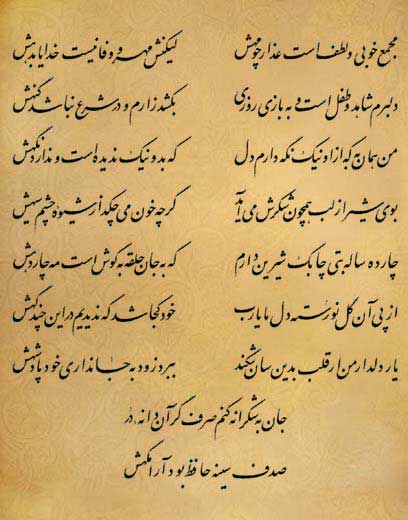 مجمع خوبی و لطف است عذار چو مهش لیکنش مهر و وفا نیست خدایا بدهش
دلبرم شاهد و طفل است و به بازی روزی بکشد زارم و در شرع نباشد گنهش
من همان به که از او نیک نگه دارم دل که بد و نیک ندیده‌ست و ندارد نگهش
بوی شیر از لب همچون شکرش می‌آید گرچه خون می‌چکد از شیوه چشم سیهش
چارده ساله بتی چابک شیرین دارم که به جان حلقه به گوش است مه چاردهش
از پی آن گل نورسته دل ما یا رب خود کجا شد که ندیدیم در این چند گهش
یار دلدار من ار قلب بدین سان شکند ببرد زود به جانداری خود پادشهش
جان به شکرانه کنم صرف گر آن دانه در
صدف سینه حافظ بود آرامگهش